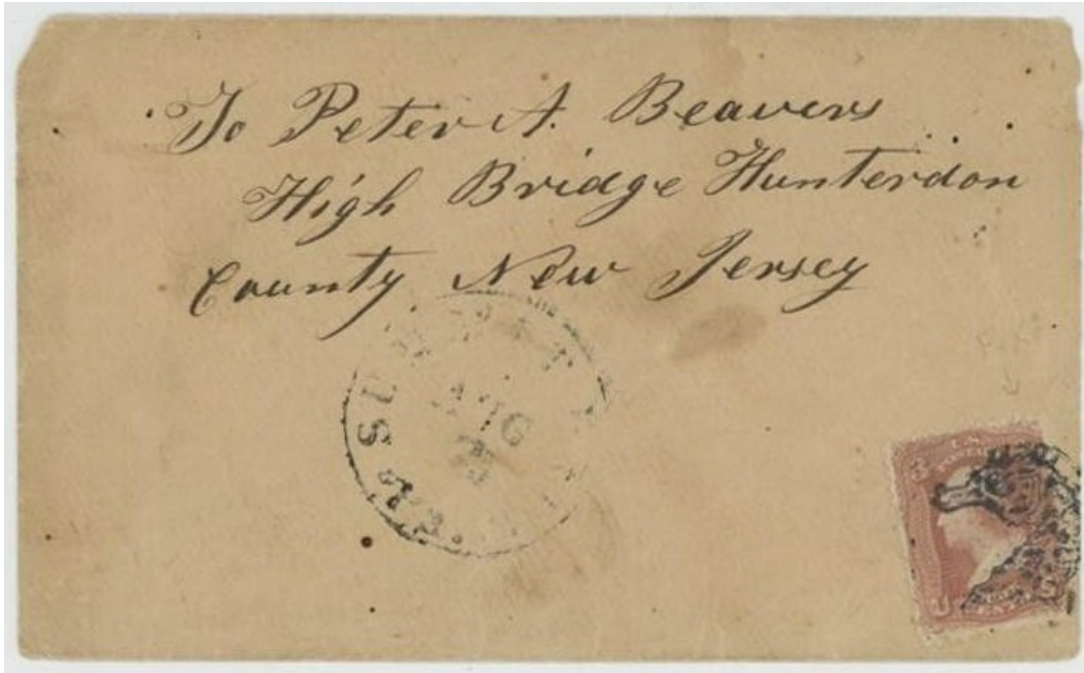 To Peter A. Beavers
High Bridge Hunterdon
County New Jersey
AUG